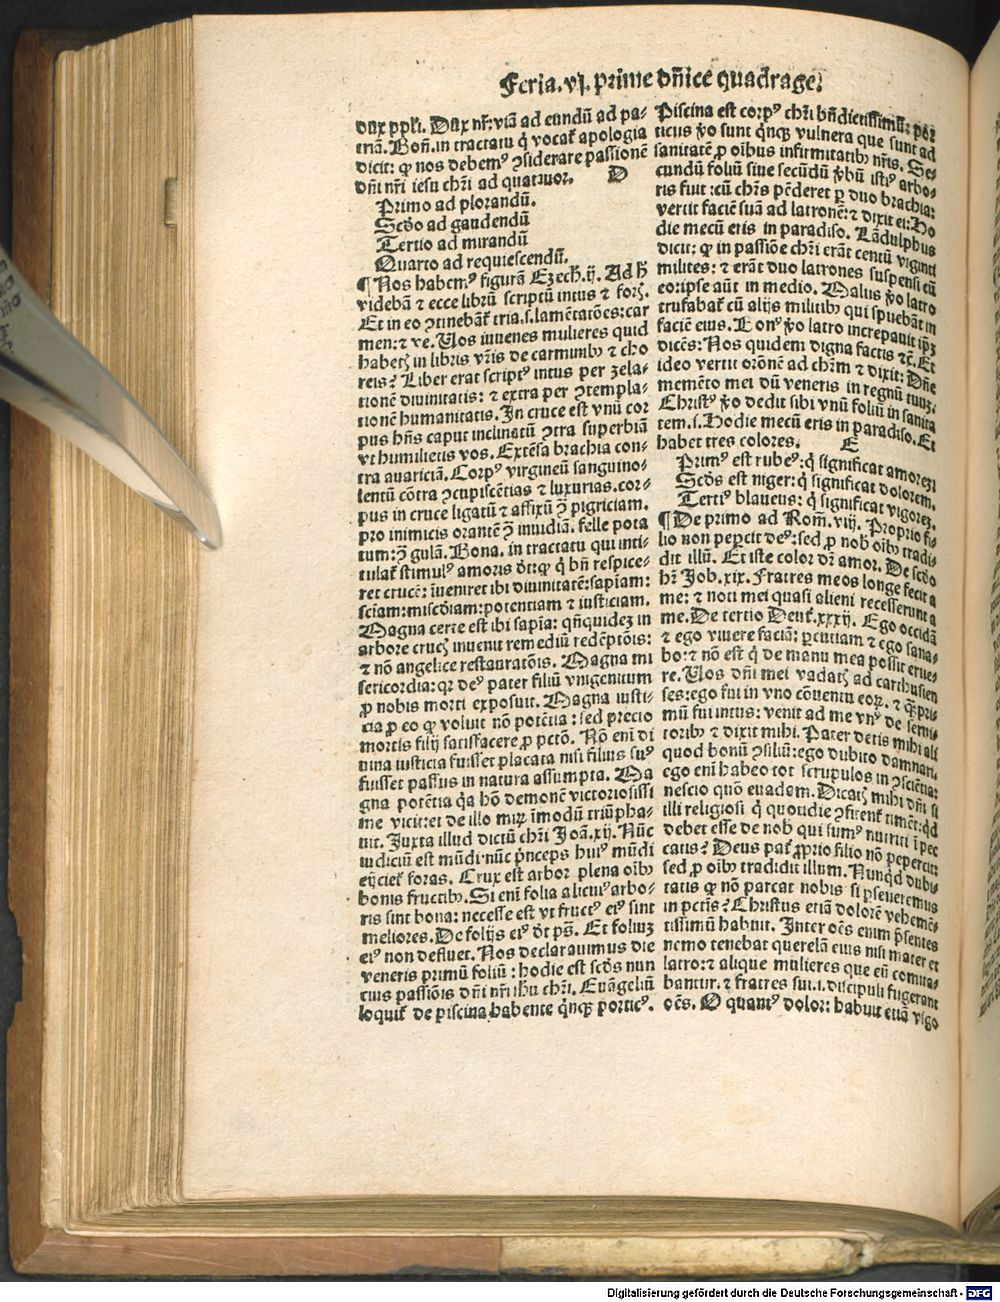 Feria.vj. prime dñice quadrage.
dux ppli. Dux nr̃: viã ad eundũ ad pa-
triã. Boñ. in tractatu q̇ vocat̃ apologia
dicit: ꝙ nos debemꝰ ꝯsiderare passionẽ
dñi nr̃i iesu chr̃i ad quatuor. D
Primo ad plorandũ.
Scḋo ad gaudendũ
Tertio ad mirandũ
Quarto ad requiescendũ.
¶ Nos habemꝰ figurã Ezech̃.ij. Ad h̃
videbã ⁊ ecce librũ scriptũ intus ⁊ forꝭ.
Et in eo ꝯtinebãt̃ tria.s.lamẽtatões: car
men: ⁊ ve. Uos iuuenes mulieres quid
habetꝭ in libris vr̃is de carminibꝰ ⁊ cho
reis? Liber erat scriptꝰ intus per zela-
tionẽ diuinitatis: ⁊ extra per ꝯtempla-
tionẽ humanitatis. In cruce est vnũ cor
pus hñs caput inclinatũ ꝯtra superbiã
vt humilietis vos. Extẽsa brachia con-
tra auariciã. Corpꝰ virgineũ sanguino-
lentũ cõtra ꝯcupiscẽtias ⁊ luxurias. cor-
pus in cruce ligatũ ⁊ affixũ ꝯ̃ pigriciam.
pro inimicis orantẽ ꝯ̃ inuidiã. felle pota
tum: ꝯ̃ gulã. Bona. in tractatu qui inti-
tulat̃ stimulꝰ amoris ḋt: ꝙ q̇ bñ respice-
ret crucẽ: iueniret ibi diuinitatẽ: sapiam:
sciam: miscḋiam: potentiam ⁊ iusticiam.
Magna certe est ibi sapĩa: qñquidez in
arbore crucꝭ inuenit remediũ redẽptõis:
⁊ nõ angelice restauratõis. Magna mi
sericordia: qꝛ deꝰ pater filiũ vnigenitum
ꝓ nobis morti exposuit. Magna iusti-
cia ꝑ eo ꝙ voluit nõ potẽtia: sed precio
mortis filij satisfacere ꝓ pctõ. Nõ enĩ di
uina iusticia fuisset placata nisi filius suꝰ
fuisset passus in natura assumpta. Ma
gna potẽtia q̇a hõ demonẽ victoriosissi
me vicit: et de illo miꝝ ĩmodũ triũpha-
uit. Iuxta illud dictũ chr̃i Joã.xij. Nũc
iudiciũ est mũdi nũc p̃nceps huiꝰ mũdi
eijciet̃ foras. Crux est arbor plena oĩbꝰ
bonis fructibꝰ. Si enĩ folia alicuiꝰ arbo-
ris sint bona: necesse est vt fructꝰ eiꝰ sint
meliores. De folijs eiꝰ ḋt ps̃. Et foliuz
eiꝰ non defluet. Nos declarauimus die
veneris primũ foliũ: hodie est scḋs nun
cius passiõis dñi nr̃i ihũ chr̃i. Euãgeliũ
loquit̃ de piscina habente q̇nqꝫ porticꝰ.
Piscina est corpꝰ chr̃i bñdictissimũ: por
ticus ꝟo sunt q̇nqꝫ vulnera que sunt ad
sanitatẽ ꝓ oĩbus infirmitatibꝰ nr̃is. Se-
cundũ foliũ siue secũdũ ꝟbũ istiꝰ arbo-
ris fuit: cũ chr̃s pẽderet ꝑ duo brachia:
vertit faciẽ suã ad latronẽ: ⁊ dixit ei: Ho
die mecũ eris in paradiso. Lãdulphus
dicit: ꝙ in passiõe chr̃i erãt centũ viginti
milites: ⁊ erãt duo latrones suspensi cũ
eo: ipse aũt in medio. Malus ꝟo latro
trufabat̃ cũ alijs militibꝰ qui spuebãt in
faciẽ eius. Bonꝰ ꝟo latro increpauit ip̃ꝫ
dicẽs: Nos quidem digna factis ⁊c̃. Et
ideo vertit orõnẽ ad chr̃m ⁊ dixit: Dñe
memẽto mei dũ veneris in regnũ tuuꝫ.
Christꝰ ꝟo dedit sibi vnũ foliũ in sanita
tem.s. Hodie mecũ eris in paradiso. Et
habet tres colores. E
Primꝰ est rubeꝰ: q̇ significat amoreꝫ
Scḋs est niger: q̇ significat dolorem.
Tertiꝰ blaueus: q̇ significat vigoreꝫ.
¶ De primo ad Rom̃. viij. Proprio fi-
lio non peꝑcit deꝰ: sed ꝓ nob̃ oĩbꝰ tradi-
dit illũ. Et iste color dr̃ amor. De scḋo
hr̃ Job.xix. Fratres meos longe fecit a
me: ⁊ noti mei quasi alieni recesserunt a
me. De tertio Deut̃.xxxij. Ego occidã
⁊ ego viuere faciã: ꝑcutiam ⁊ ego sana-
bo: ⁊ nõ est q̇ de manu mea possit erue-
re. Uos dñi mei vadatꝭ ad carthusien
ses: ego fui in vno cõuentu eoꝝ. ⁊ qñ pri-
mũ fui intus: venit ad me vnꝰ de serui-
toribꝰ ⁊ dixit mihi. Pater detis mihi ali
quod bonũ ꝯsiliũ: ego dubito damnari.
ego enĩ habeo tot scrupulos in ꝯsciẽtia:
nescio quõ euadem. Dicatꝭ mihi dñi si
illi religiosi q̇ quotidie ꝯfitent̃ timẽt: qd̃
debet esse de nob̃ qui sumꝰ nutriti ĩ pec
catis? Deus pat̃ ꝓprio filio nõ pepercit:
sed ꝓ oĩbꝰ tradidit illum. Nunqd̃ dubi-
tatis ꝙ nõ parcat nobis si ꝑseueremus
in pctĩs? Christus etiã dolorẽ vehemẽ-
tissimũ habuit. Inter oẽs enim p̃sentes
nemo tenebat querelã eius nisi mater et
latro: ⁊ alique mulieres que eũ comita-
bantur. ⁊ fratres sui.i. discipuli fugerant
oẽs. O quantꝰ dolor: habuit etiã vigo
Digitalisierung gefördert durch die Deutsche Forschungsgemeinschaft - DFG